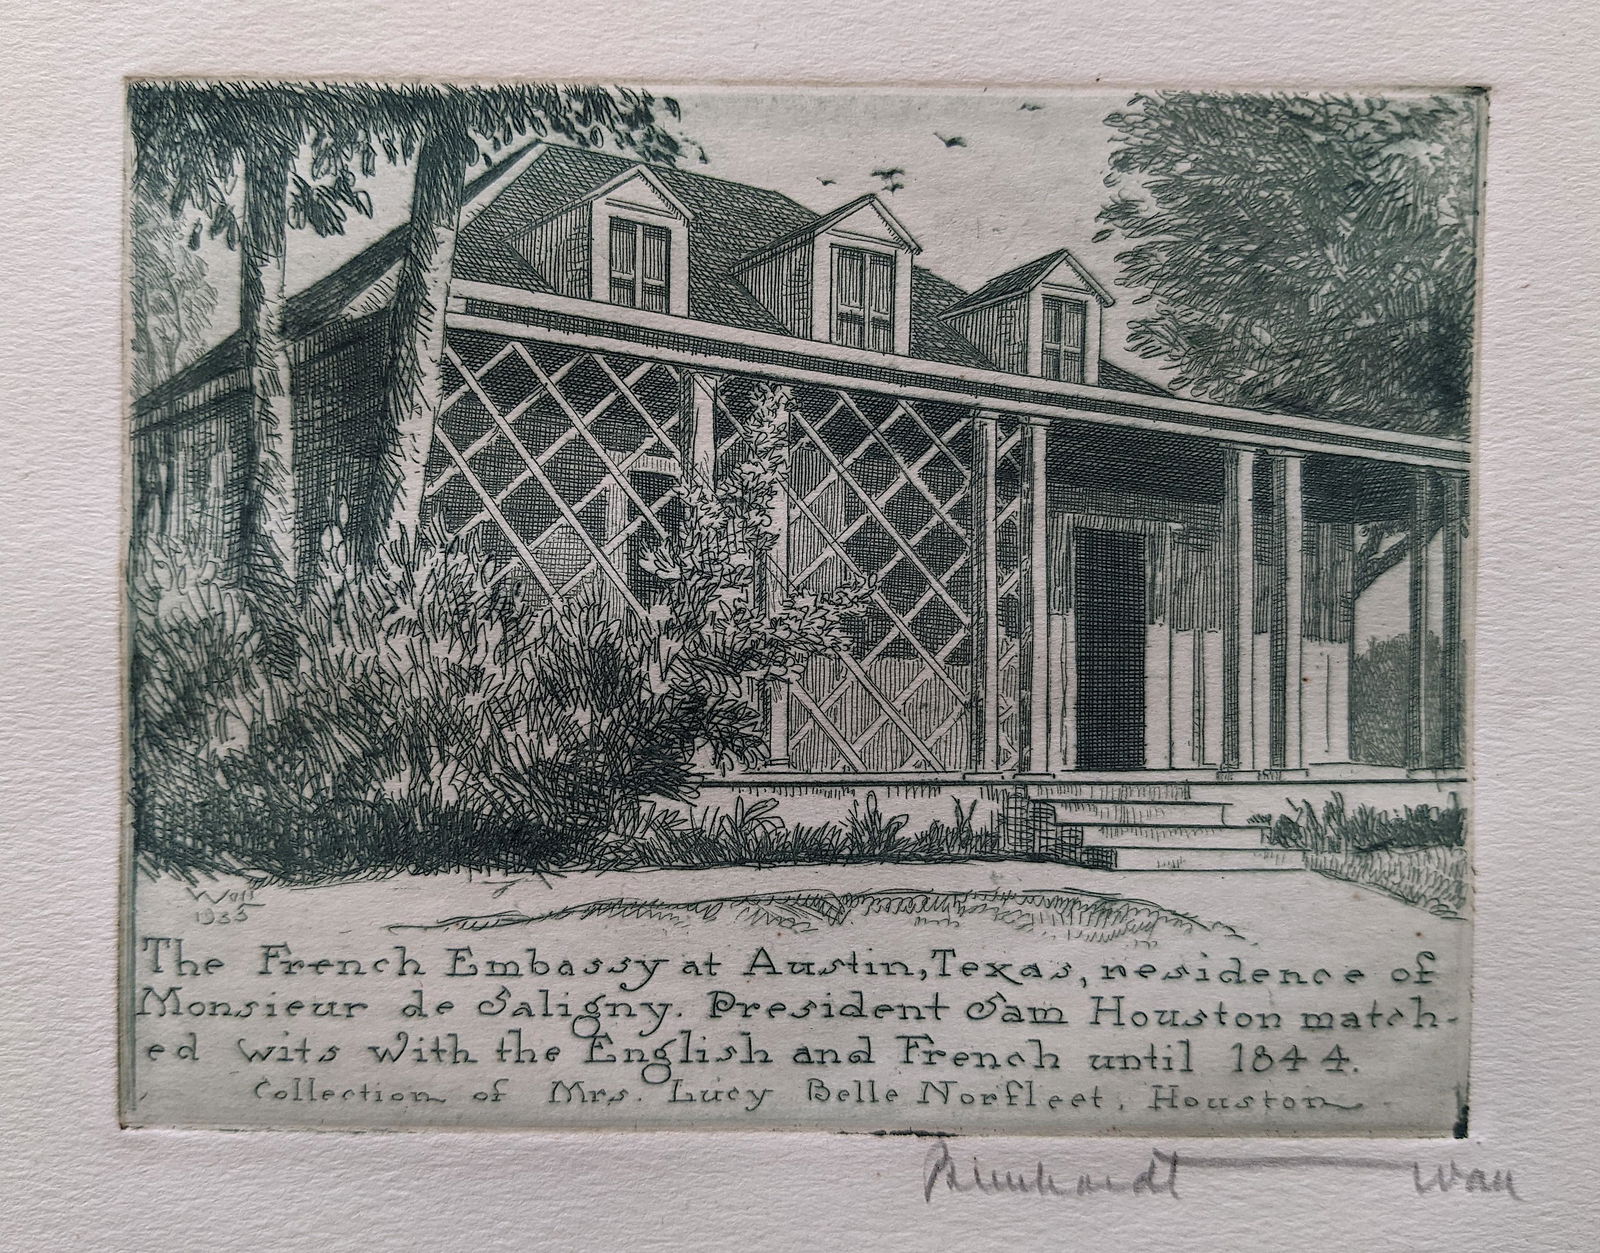 Wall
1933
The French Embassy at Austin, Texas, residence of
Monsieur de Saligny. President Sam Houston match-
ed wits with the English and French until 1844.
Collection of Mrs. Lucy Belle Norfleet, Houston
Bernhardt Wall